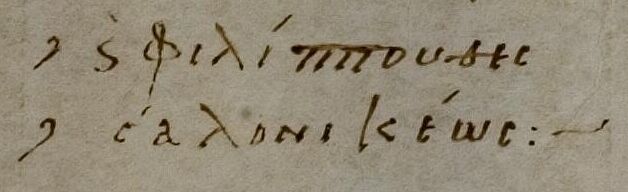 , ς φιλίππου θεσ
, σαλονικέως:~